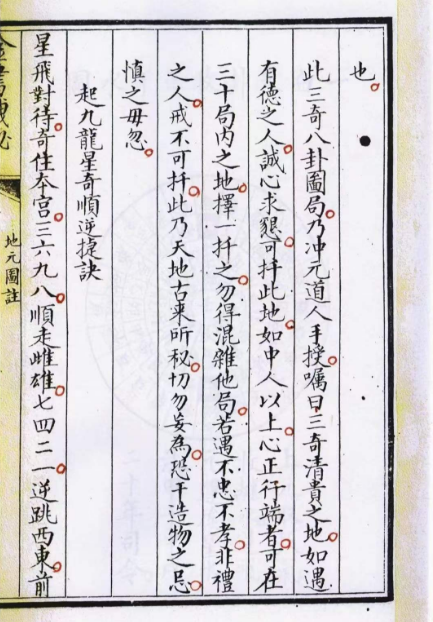 也。
此三奇八卦圖局。乃冲元道人手授。嘱曰三奇清貴之地。如遇
有德之人。誠心求懇。可扦此地。如中人以上。心正行端者。可在
三十局内之地。擇一扦之。勿得混雜他局。若遇不忠不孝。非禮
之人。戒不可扦。此乃天地古来所秘。切勿妄為。恐干造物之忌。
慎之毋忽。
起九龍星奇順逆捷訣
星飛對待。奇住本宫。三六九八。順走雌雄。七四二一。逆跳西東。前
地元圖註